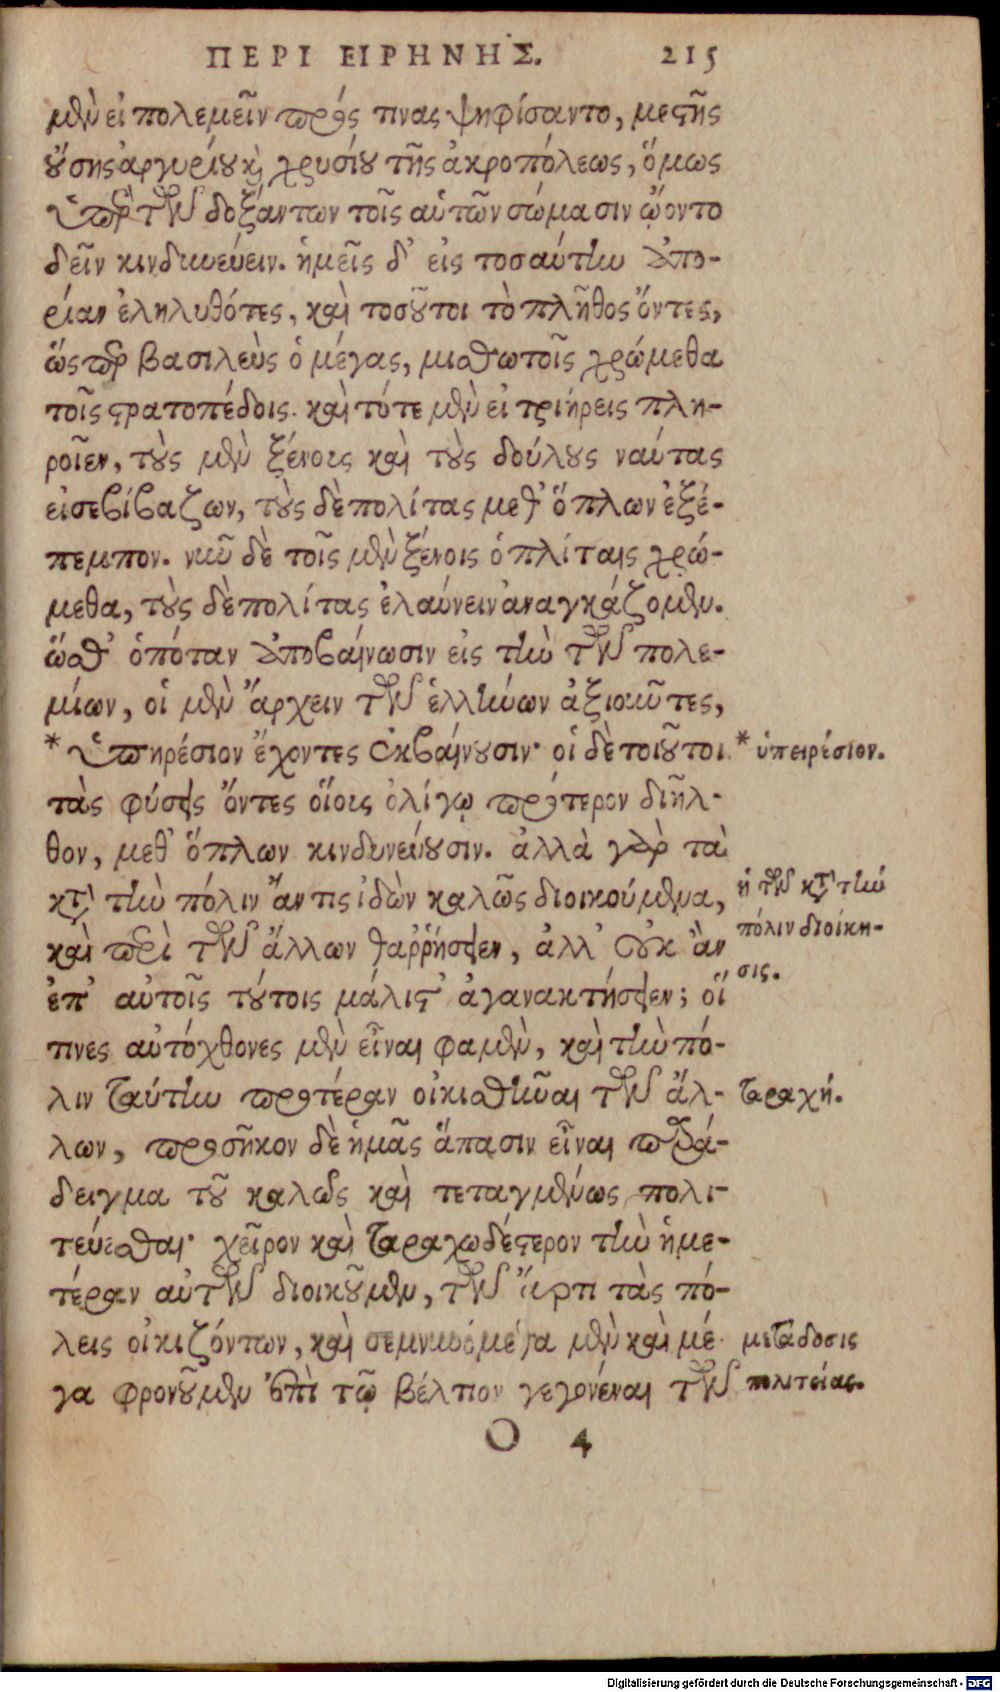 ΠΕΡΙ ΕΙΡΗΝΗΣ. 215
μὲν εἰ πολεμεῖν πρός τινας ψηφίσαιντο, μεστῆς
οὔσης ἀργυρίου καὶ χρυσίου τῆς ἀκροπόλεως, ὅμως
ὑπὲρ τῶν δοξάντων τοῖς αὑτῶν σώμασιν ᾤοντο
δεῖν κινδυνεύειν. ἡμεῖς δ' εἰς τοσαύτην ἀπο-
ρίαν ἐληλυθότες, καὶ τοσοῦτοι τὸ πλῆθος ὄντες,
ὥσπερ βασιλεὺς ὁ μέγας, μισθωτοῖς χρώμεθα
τοῖς στρατοπέδοις. καὶ τότε μὲν εἰ τριήρεις πλη-
ροῖεν, τοὺς μὲν ξένους καὶ τοὺς δούλους ναύτας
εἰσεβίβαζων, τοὺς δὲ πολίτας μεθ' ὅπλων ἐξέ-
πεμπον. νῦν δὲ τοῖς μὲν ξένοις ὁπλίταις χρώ-
μεθα, τοὺς δὲ πολίτας ἐλαύνειν ἀναγκάζομεν.
ὥσθ' ὁπόταν ἀποβαίνωσιν εἰς τὴν τῶν πολε-
μίων, οἱ μὲν ἄρχειν τῶν ἑλλήνων ἀξιοῦντες,
* ὑπηρέσιον ἔχοντες ἐκβαίνουσιν· οἱ δὲ τοιοῦτοι * ὑπειρέσιον.
τὰς φύσεις ὄντες οἵους ὀλίγῳ πρότερον διῆλ-
θον, μεθ' ὅπλων κινδυνεύουσιν. ἀλλὰ γὰρ τὰ
κατὰ τὴν πόλιν ἄν τις ἰδὼν καλῶς διοικούμενα, ἡ τῶν κατὰ τὴν
καὶ περὶ τῶν ἄλλων θαῤῥήσειεν, ἀλλ' οὐκ ἂν πόλιν διοίκη-
ἐπ' αὐτοῖς τούτοις μάλιστ' ἀγανακτήσειεν; οἵ σις.
τινες αὐτόχθονες μὲν εἶναι φαμὲν, καὶ τὴν πό-
λιν ταύτην προτέραν οἰκισθῆναι τῶν ἄλ- ταραχή.
λων, προσῆκον δὲ ἡμᾶς ἅπασιν εἶναι παρά-
δειγμα τοῦ καλῶς καὶ τεταγμένως πολι-
τεύεσθαι· χεῖρον καὶ ταραχωδέστερον τὴν ἡμε-
τέραν αὐτῶν διοικοῦμεν, τῶν ἄρτι τὰς πό-
λεις οἰκιζόντων, καὶ σεμνυνόμεθα μὲν καὶ μέ- μετάδοσις
γα φρονοῦμεν ἐπὶ τῷ βέλτιον γεγονέναι τῶν πολιτείας.
O 4
Digitalisierung gefördert durch die Deutsche Forschungsgemeinschaft - DFG